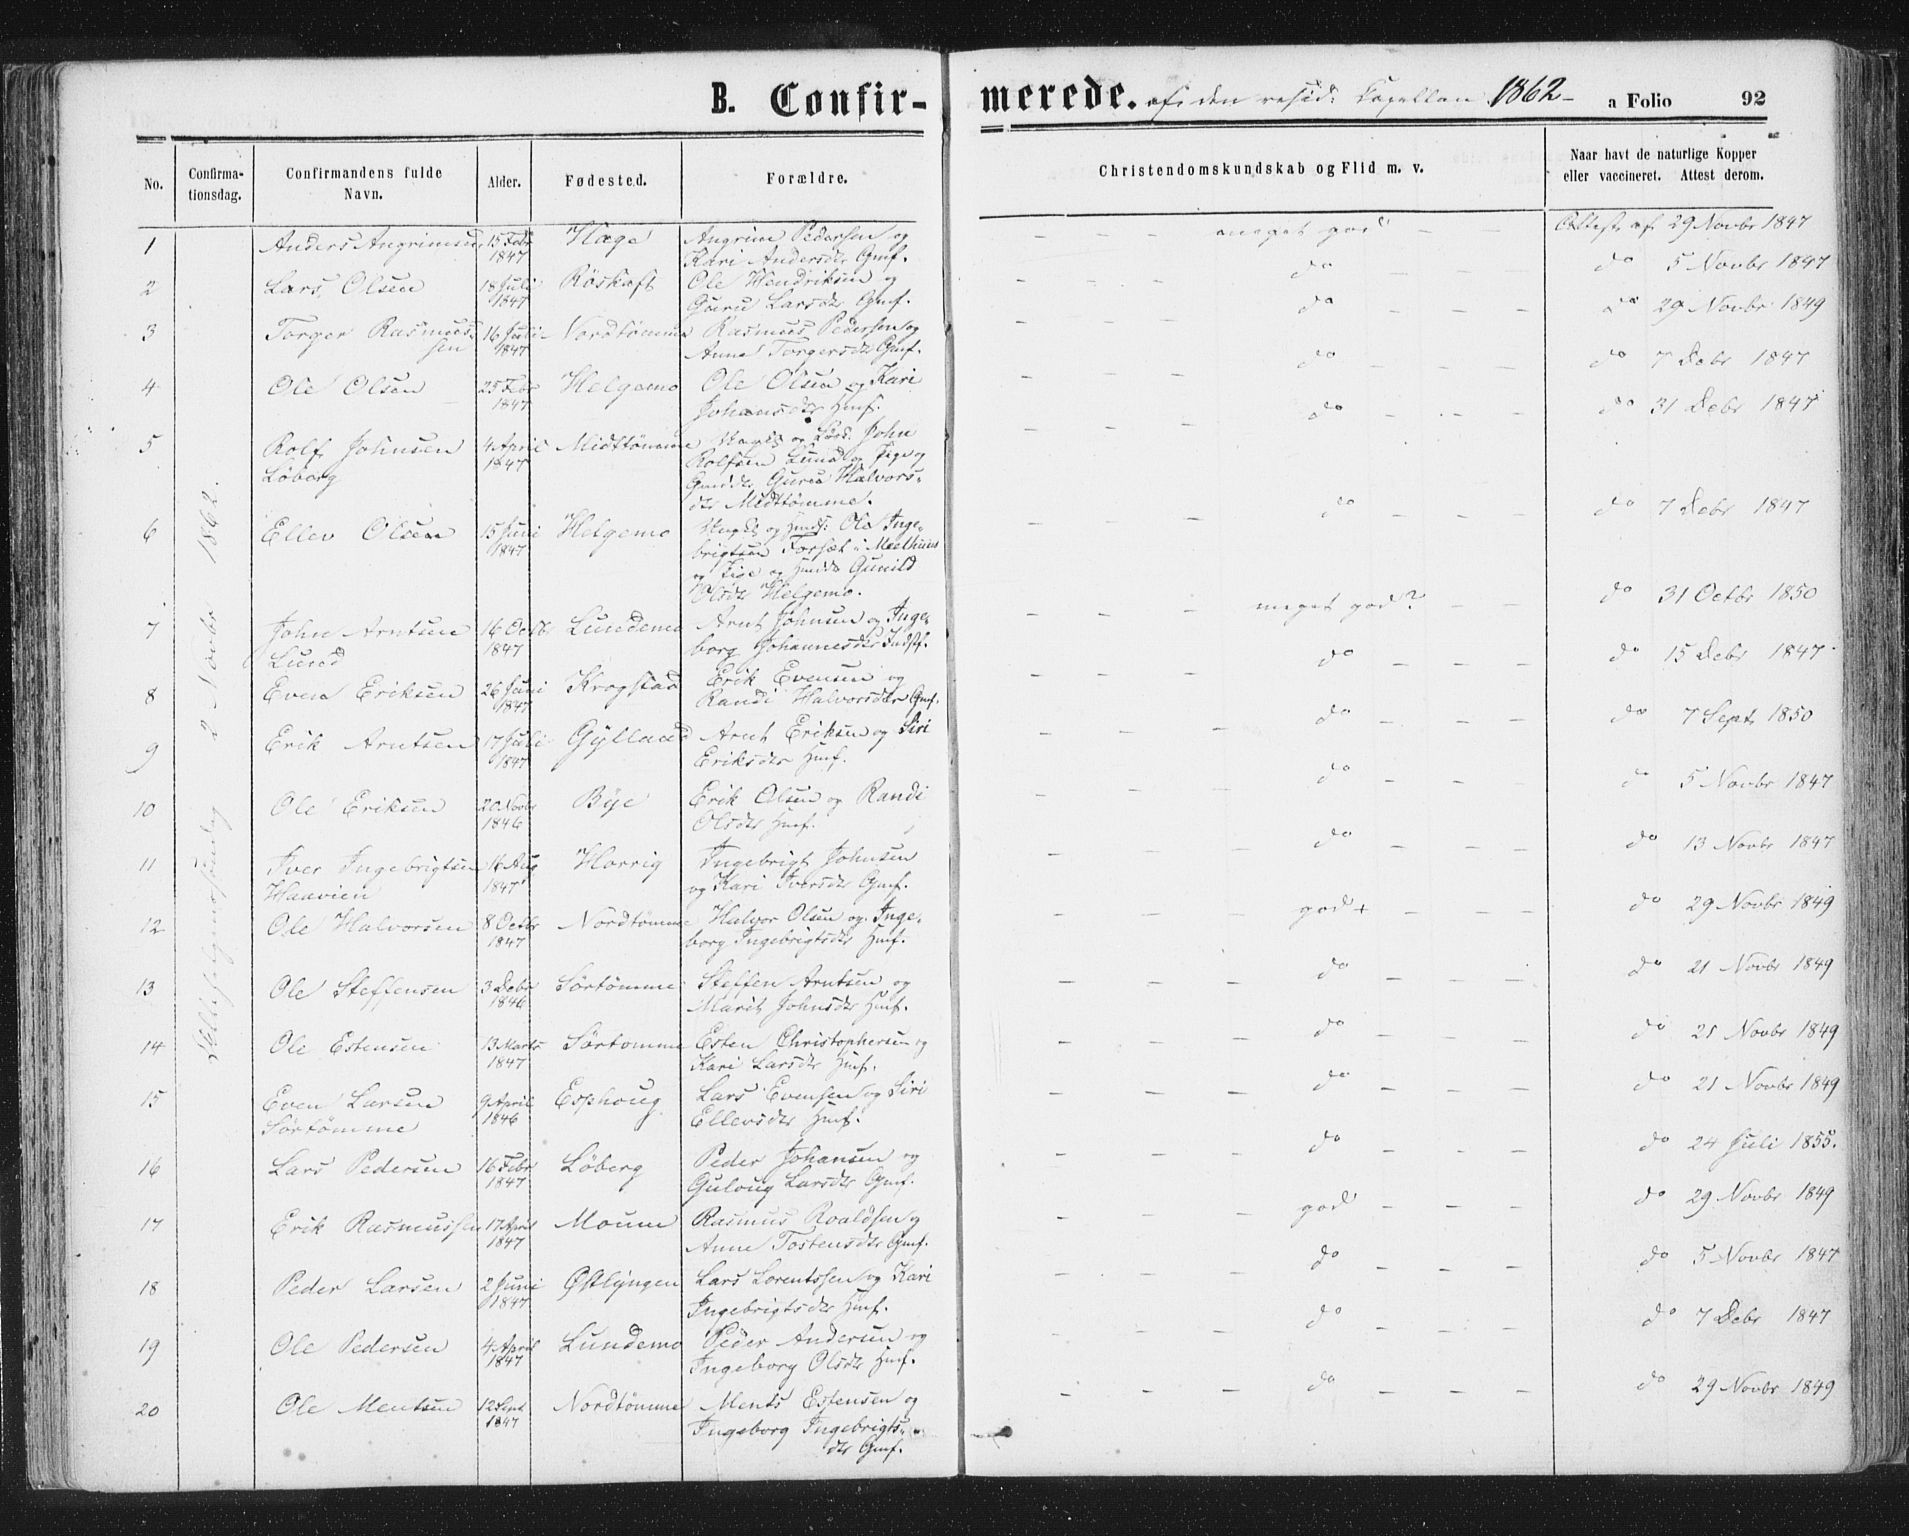 B. Confir-
merede. af den resid: Capellan 1862 - a Folio 92
No.
Confirma-
tionsdag.
Confirmandens fulde
Navn.
Alder.
Fødested.
Forældre.
Christendomskundskab og Flid m. v.
Naar havt de naturlige Kopper
eller vaccineret. Attest derom.
2 Novbr 1862.
1 Anders Angrimsen 15 Febr Hage Angrim Pedersen og - - - meget god - - Attest af 29 Novbr 1847
1847 Kari Andersdtr Gmf.
2 Lars Olsen 18 Juli Röskaft Ole Hendriksen og - - - do - - - do 5 Novbr 1847
1847 Guru Larsdtr Gmf.
3 Torger Rasmus 16 Juli Nordtömme Rasmus Pedersen og - - - do - - - do 29 Novbr 1849
sen 1847 Anne Torgersdtr Gmf.
4 Ole Olsen 25 Febr Helgemo Ole Olsen og Kari - - - do - - - do 7 Debr 1847
1847 Johansdtr Hmf.
5 Rolf Johnsen 4 April Midttömme Ungk. og John - - - do - - - do 31 Debr 1847
Löberg 1847 Rolfsen Lund og Pige og
Guru Halvors-
dtr Midttömme.
6 Ellev Olsen 15 Juni Helgemo Ungk. og Ole Inge- - - - do - - - do 7 Debr 1847
1847 brigtsen Forsæt i Meelhuus
og Pige og Gunild
Olsdtr Helgemo.
7 John Arntsen 16 Octbr Lundemo Arnt Johnsen og Inge- - - - meget god? - - do 31 Octbr 1850
Lund 1847 borg Johannesdtr Indstf.
8 Even Eriksen 26 Juni Krogstad Erik Evensen og - - - do - - - do 15 Debr 1847
1847 Randi Halvorsdtr Gmf.
9 Erik Arntsen 17 Juli Gylland Arnt Eriksen og Siri - - - do - - - do 7 Sept 1850
1847 Eriksdtr Hmf.
10 Ole Eriksen 20 Novbr Bÿe Erik Olsen og Randi - - - do - - - do 5 Novbr 1847
1846 Olsdtr Hmf.
11 Iver Ingebrigtsen 16 Aug Horrig Ingebrigt Johnsen - - - do - - - do 13 Novbr 1847
Haavien 1847 og Kari Iversdtr Gmf.
12 Ole Halvorsen 8 Octbr Nordtömme Halvor Olsen og Inge- - - - god + - - - do 29 Novbr 1849
1847 borg Ingebrigtsdtr Hmf.
13 Ole Steffensen 3 Debr Sörtömme Steffen Arntsen og - - - do - - - do 21 Novbr 1849
1846 Marit Johnsdtr Hmf.
14 Ole Estensen 13 Marts Sörtomme Esten Christophersen og - - - do - - - do 21 Novbr 1849
1847 Kari Larsdtr Hmf.
15 Even Larsen 9 April Esphoug Lars Evensen og Siri - - - do - - - do 21 Novbr 1849
Sörtömme 1846 Ellevsdtr Hmf.
16 Lars Pedersen 16 Febr Löberg Peder Johansen og - - - do - - - do 24 Juli 1855.
1847 Guloug Larsdtr Gmf.
17 Erik Rasmussen 17 April Moum Rasmus Roaldsen og - - - god - - - do 29 Novbr 1849
1847 Anne Tostensdtr Gmf.
18 Peder Larsen 2 Juni Østlyngen Lars Lorentssen og Kari - - - do - - - do 5 Novbr 1847
1847 Ingebrigtsdtr Hmf.
19 Ole Pedersen 4 April Lundemo Peder Andersen og - - - do - - - do 7 Debr 1847
1847 Ingeborg Olsdtr Hmf.
20 Ole Mentsen 12 Sept Nordtömme Ments Estensen og - - - do - - - do 29 Novbr 1849
1847 Ingeborg Ingebrigts-
dtr Gmf.